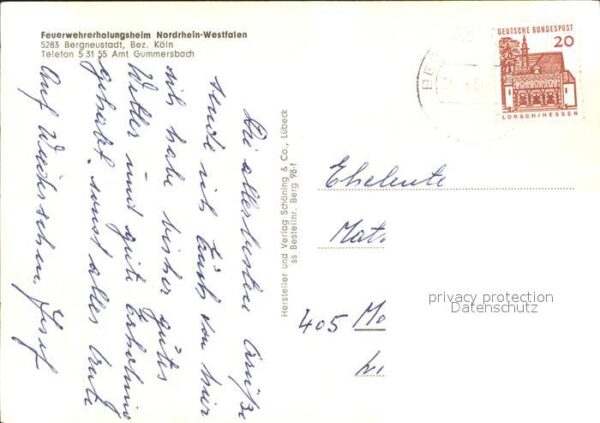 Feuerwehrerholungsheim Nordrhein-Westfalen
5283 Bergneustadt, Bez. Köln
Telefon 5 31 55 Amt Gummersbach
Die allerbesten Grüße
sende ich Euch von hier
ich habe bisher gutes
Wetter und gute Erholung
gehabt, sonst alles Gute
Auf Wiedersehen. Josef
Hersteller und Verlag Schöning & Co., Lübeck
ss Bestellnr. Berg 98-1
DEUTSCHE BUNDESPOST
20
LORSCH/HESSEN
BE
Eheleute
Mat
405 Mo
privacy protection
Datenschutz